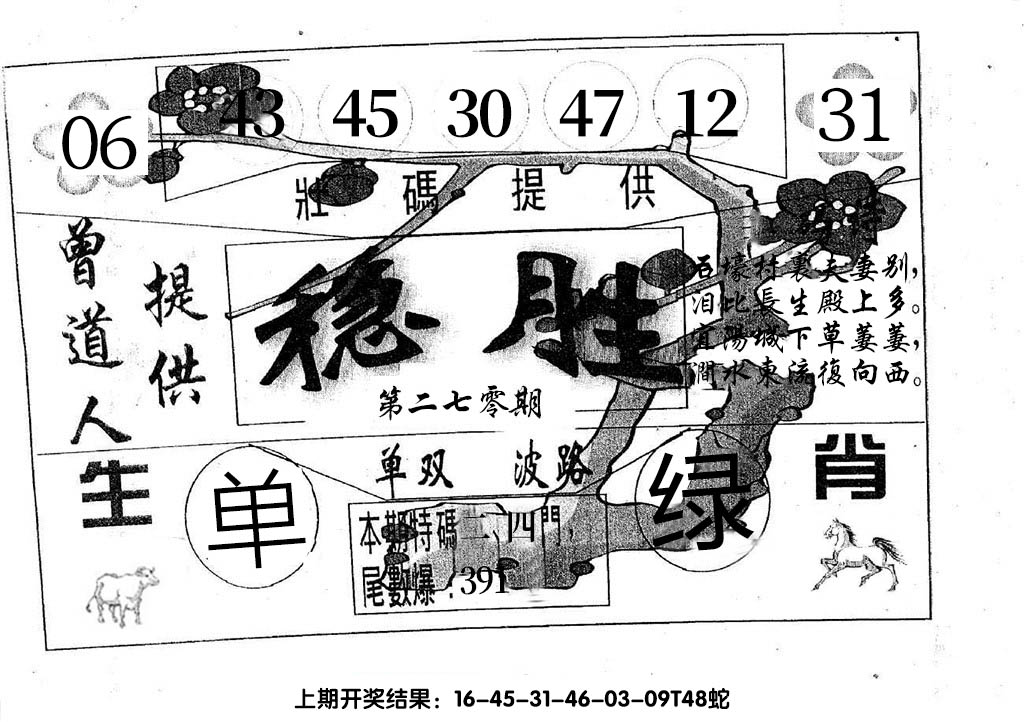 06 43 45 30 47 12 31
壯碼提供
特
曾道人
提供
稳胜
第二七零期
石壕村裏夫妻别,
泪比長生殿上多。
宜陽城下草萋萋,
澗水東流復向西。
单双 波路
生肖
单 绿
本期特碼二、四門,
尾數爆:391
上期开奖结果：16-45-31-46-03-09T48蛇